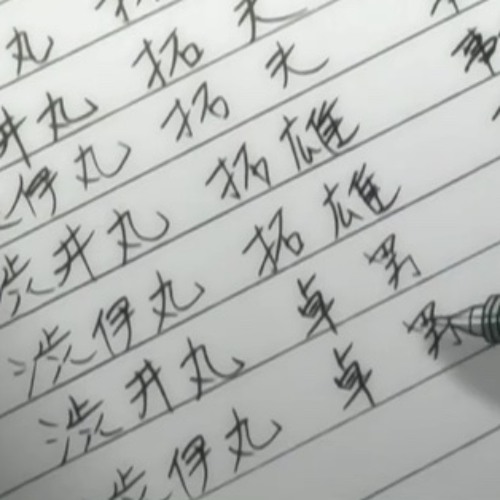 丸
井丸 拓夫
伊丸 拓夫 事
渋井丸 拓雄
渋伊丸 拓雄
渋井丸 卓男
渋伊丸 卓男